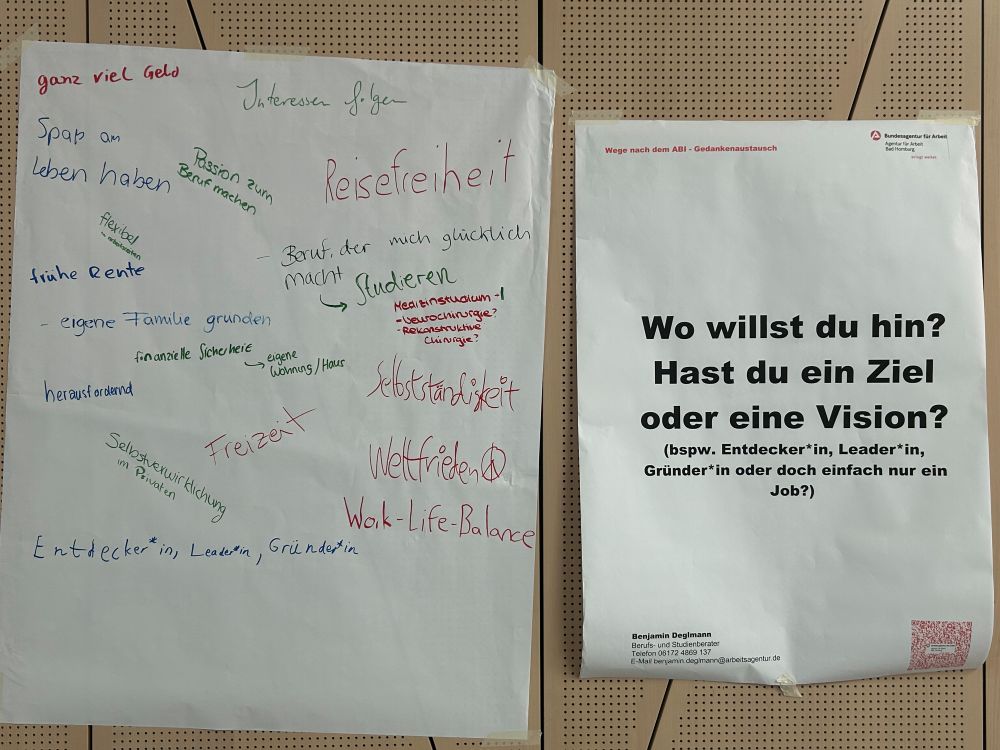 ganz viel Geld
Interessen folgen
Spaß am
Leben haben
Passion zum
Beruf machen
Reisefreiheit
flexibel
frühe Rente
- Beruf, der mich glücklich
macht
→ Studieren
Medizinstudium -1
- Neurochirurgie?
- Rekonstruktive
Chirurgie?
- eigene Familie grunden
finanzielle Sicherheit
→ eigene
Wohnung/Haus
herausfordernd
Selbstständigkeit
Freizeit
Selbstverwirklichung
im Privaten
Weltfrieden
Work-Life-Balance
Entdecker*in, Leader*in, Gründer*in
Bundesagentur für Arbeit
Agentur für Arbeit
Bad Homburg
bringt weiter.
Wege nach dem ABI - Gedankenaustausch
Wo willst du hin?
Hast du ein Ziel
oder eine Vision?
(bspw. Entdecker*in, Leader*in,
Gründer*in oder doch einfach nur ein
Job?)
Benjamin Deglmann
Berufs- und Studienberater
Telefon 06172 4869 137
E-Mail benjamin.deglmann@arbeitsagentur.de